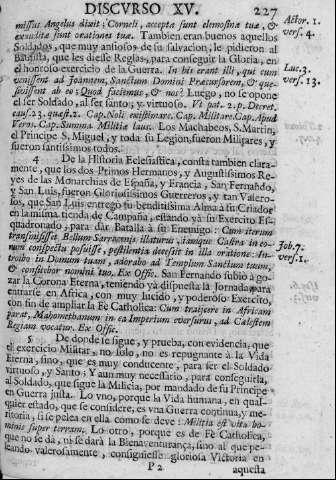 DISCVRSO XV. 227
missus Angelus dixit; Corneli, accepta sunt elemosinæ tuæ, &
exauditæ sunt orationes tuæ. Tambien eran buenos aquellos
Soldados, que muy ansiosos de su salvacion, le pidieron al
Bautista, que les diesse Reglas, para conseguir la Gloria, en
el honroso exercicio de la Guerra. In his erant illi, qui cum
venissent ad Joannem, Sanctum Domini Præcursorem, & quæ-
sissent ab eo; Quod faciemus, & nos? Luego, no se opone
el ser Soldado, al ser santo; y virtuoso. Vt pat. 2. p. Decret.
caus. 23. quæst. 2. Cap. Noli existimare. Cap. Militare. Cap. Apud
Vero. Cap. Summa. Militiæ laus. Los Machabeos, S. Martin,
el Principe S. Miguel, y toda su Legion, fueron Militares, y
fueron santissimos todos.
4 De la Historia Eclesiastica, consta tambien clara-
mente, que los dos Primos Hermanos, y Augustissimos Re-
yes de las Monarchias de España, y Francia, San Fernando,
y San Luis, fueron Gloriosissimos Guerreros, y tan Valero-
sos, que San Luis entregò su benditissima Alma à su Criador
en la misma tienda de Campaña, estando yà su Exercito Es-
quadronado, para dàr Batalla à su Enemigo: Cum iterum
transmisisset Bellum Sarracenis illaturus, iamque Castra in eo-
rum conspectu posuisset, pestilentia decessit in illa oratione: In-
troibo in Domum tuam, adorabo ad Templum Sanctum tuum,
& confitebor nomini tuo. Ex Offic. San Fernando subiò à go-
zar la Corona Eterna, teniendo yà dispuesta la Jornada para
entrarse en Africa, con muy lucido, y poderoso Exercito,
con fin de ampliar la Fè Catholica: Cum traijcere in Africam
parat, Mahometbanum in ea Imperium eversurus, ad Cælestem
Regiam vocatur. Ex Offic.
5 De donde se sigue, y prueba, con evidencia, que
el exercicio Militar, no solo, no es repugnante à la Vida
Eterna, sino, que es muy conducente, para ser el Soldado
virtuoso, y Santo; Y aun muy necessario, para conseguirla,
al Soldado, que sigue la Milicia, por mandado de su Principe
en Guerra justa. Lo vno, porque la Vida humana, en qual-
quier estado, que se considere, es vna Guerra continua, y me-
ritoria, si se pelea en ella como se deve: Militia est vita ho-
minis super terram. Lo otro, porque es de Fè Catholica,
que no se dà, ni se darà la Bienaventurança, sino al que pe-
leando valerosamente, consiguiesse gloriosa Victoria en
P 2 aquesta
Actor. 1.
vers. 4.
Luc. 3.
vers. 13.
Job. 7.
vers. 1.